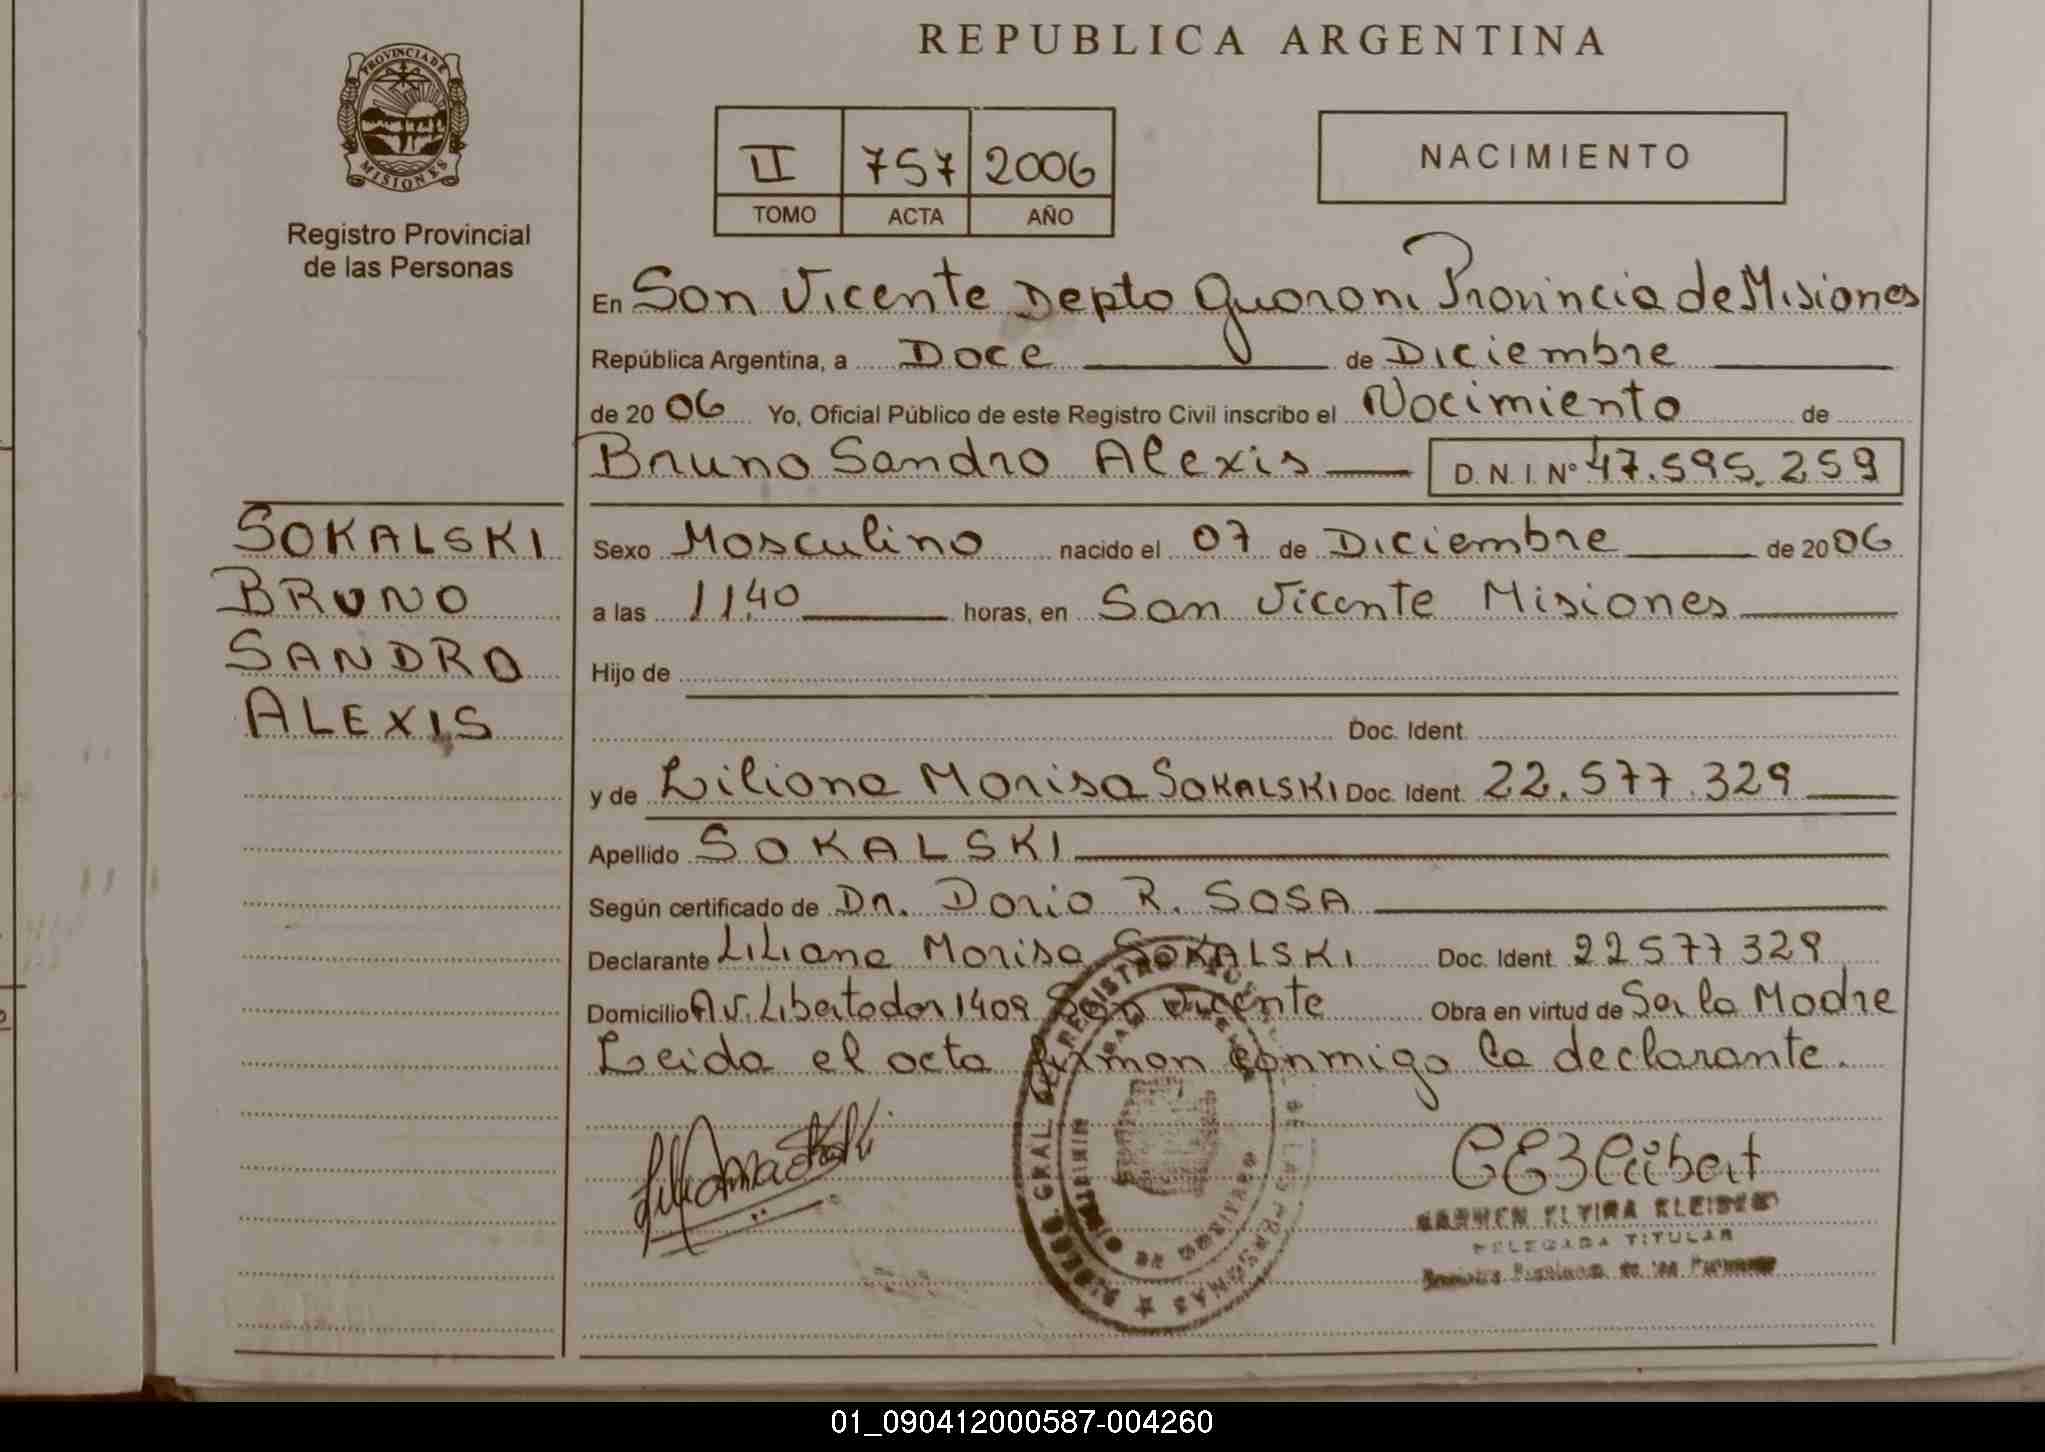 PROVINCIA DE
MISIONES
Registro Provincial
de las Personas
REPUBLICA ARGENTINA
II 757 2006
TOMO ACTA AÑO
NACIMIENTO
En San Vicente Depto Guarani Provincia de Misiones
República Argentina, a Doce de Diciembre
de 20 06 Yo, Oficial Público de este Registro Civil inscribo el Nacimiento de
Bruno Sandro Alexis D.N.I. Nº 47.595.259
SOKALSKI
BRUNO
SANDRO
ALEXIS
Sexo Masculino nacido el 07 de Diciembre de 20 06
a las 11,40 horas, en San Vicente Misiones
Hijo de
Doc. Ident.
y de Liliana Marisa SOKALSKI Doc. Ident. 22.577.329
Apellido SOKALSKI
Según certificado de Dr. Dario R. SOSA
Declarante Liliana Marisa SOKALSKI Doc. Ident. 22577329
Domicilio Av. Libertador 1409 San Vicente Obra en virtud de Ser la Madre
Leida el acta firman conmigo la declarante.
CARMEN ELVIRA KLEIBERT
DELEGADA TITULAR
01_090412000587-004260